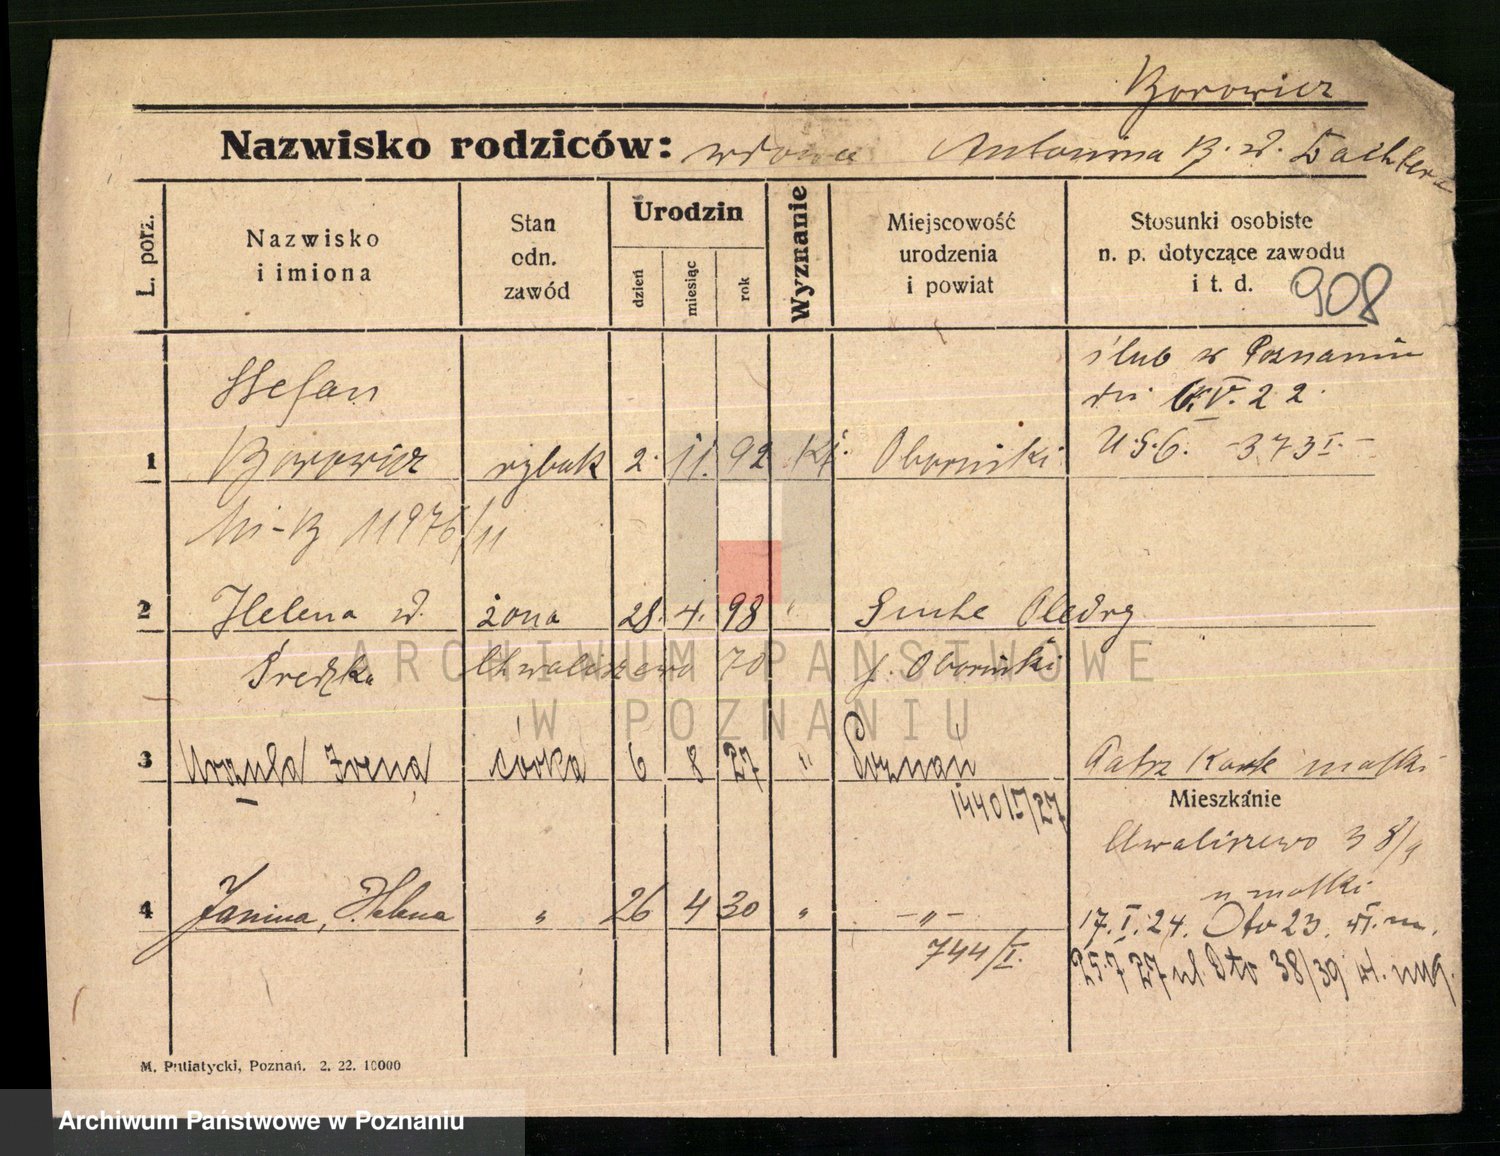 Borowicz
Nazwisko rodziców: wdowa Antonina B. d.
L. porz.
Nazwisko i imiona
Stan odn. zawód
Urodzin
dzień
miesiąc
rok
Wyznanie
Miejscowość urodzenia i powiat
Stosunki osobiste n. p. dotyczące zawodu i t. d.
908
ślub w Poznaniu
dn. 6.V.22.
U.S.C. -373 I.-
Stefan
1 Borowicz rybak 2. 11. 92 Kt. Oborniki
11976/11
2 Helena d. żona 28. 4. 98 " Oledry
Średzka Chwaliszewo 70 p. Oborniki
3 Urszula Irena córka 6 8 27 " Poznań
1440/I/27
Patrz Kartę matki
Mieszkanie
Chwaliszewo 38/9
u matki
4 Janina, Helena " 26 4 30 " -"-
744/I.
17.I.24. Oto 23. m.
25.7 27 ul 38/39
M. Putiatycki, Poznań. 2. 22. 10000
ARCHIWUM PAŃSTWOWE
W POZNANIU
Archiwum Państwowe w Poznaniu